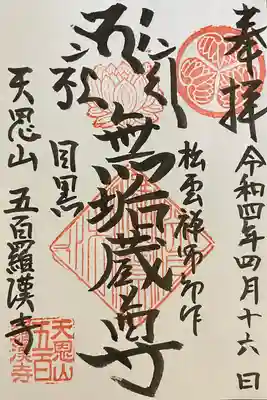 奉拝
令和四年四月十六日
松雲禅師御作
無垢蔵尊
目黒
天恩山 五百羅漢寺
天恩山
五百
羅漢寺